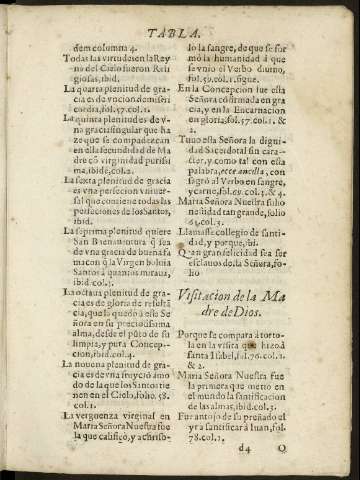 TABLA.
dem columna 4.
Todas las virtudes en la Rey
na del Cielo fueron Reli
giosas, ibid.
La quarta plenitud de gra
cia es de vncion de miseri
cordia, fol. 57. col. 1.
La quinta plenitud es de v-
na gracia singular que ha
ze que se compadezcan
en ella fecundidad de Ma
dre cõ virginidad purissi
ma, ibide, col. 2.
La sexta plenitud de gracia
es vna perfeccion vniuer-
sal que contiene todas las
perfecciones de los Santos,
ibid.
La septima plenitud quiere
San Buenauentura q̃ sea
de vna gracia de buena fa
ma con q̃ la Virgen boluia
Santos à quantos miraua,
ibid. col. 3.
La octaua plenitud de gra-
cia es de gloria de resulta
cia, que la quedò a esse Se
ñora en su preciosissima
alma, desde el pũto de su
limpia, y pura Concep-
cion, ibid. col. 4.
La nouena plenitud de gra
cia es de vna proyeciõ amo
do de la que los Santos tie
nen en el Cielo, folio. 58.
col. 1.
La verguença virginal en
Maria Señora Nuestra fue
la que calificò, y acrisò-
lo la sangre, de que se for
mò la humanidad à que
se vnio el Verbo diuino,
fol. 59. col. 1. sigue.
En la Concepcion fue esta
Señora cõfirmada en gra
cia, y en la Encarnacion
en gloria, fol. 57. col. 1. &
2.
Tuuo esta Señora la digni-
dad Sacerdotal sin cara-
cter, y como tal con esta
palabra, ecce ancilla, con
sagrò al Verbo en sangre,
y carne, fol. 61. col. 3. & 4.
Maria Señora Nuestra
tan grande, folio
64. col. 3.
Llamasse collegio de santi-
dad, y porque, ibi.
Quan gran felicidad sea ser
esclauos de la Señora, fo-
lio
Visitacion de la Ma
dre de Dios.
Porque se compara à torto-
la en la visita que hizo à
santa Isabel, fol. 76. col. 1.
& 2.
Maria Señora Nuestra fue
la primera que metio en
el mundo la santificacion
de las almas, ibid. col. 3.
Fue antojo de su preñado el
yr a santificar à Iuan, fol.
78. col. 1.
d4 Q